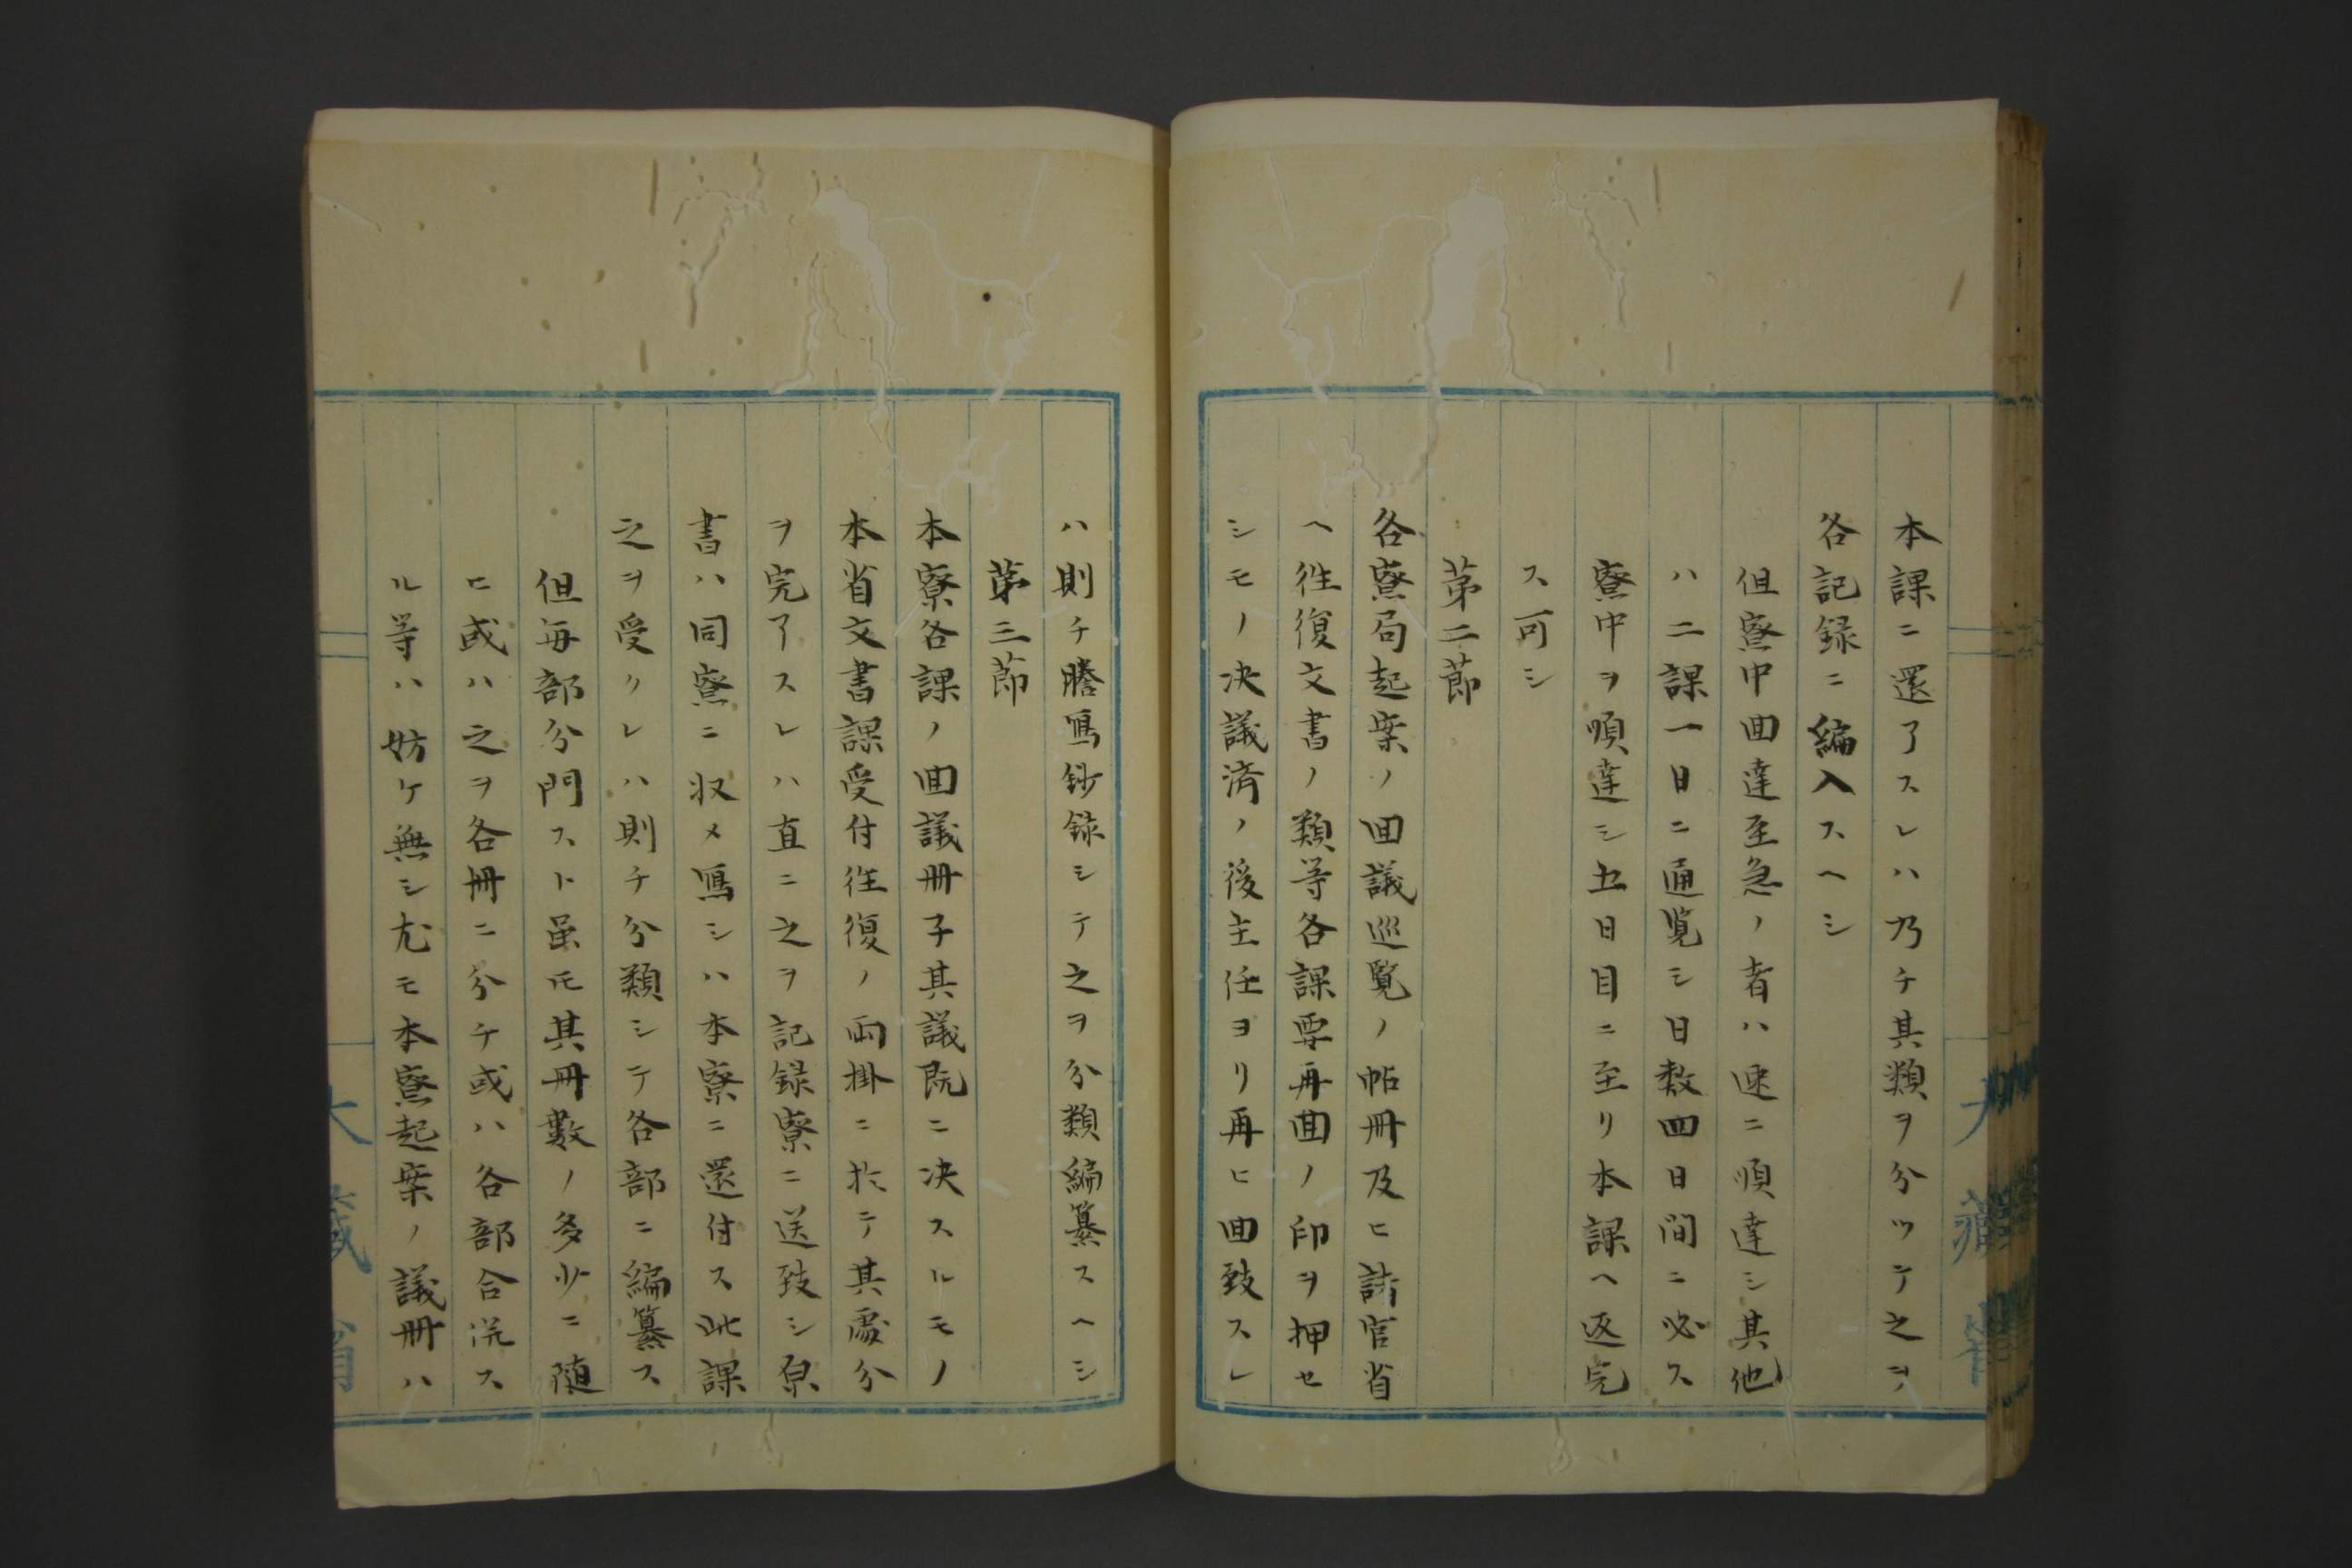 本課ニ還了スレハ乃チ其類ヲ分ツテ之ヲ
各記録ニ編入スヘシ
但寮中囬達至急ノ者ハ速ニ順達シ其他
ハ二課一日ニ通覧シ日数四日間ニ必ス
寮中ヲ順達シ五日目ニ至リ本課ヘ返完
ス可シ
第二節
各寮局起案ノ囬議巡覧ノ帖冊及ヒ諸官省
ヘ徃復文書ノ類等各課要再囬ノ印ヲ押セ
シモノ決議済ノ後主任ヨリ再ヒ囬致スレ
ハ則チ謄寫鈔録シテ之ヲ分類編纂スヘシ
第三節
本寮各課ノ囬議冊子其議既ニ决スルモノ
本省文書課受付徃復ノ両掛ニ於テ其處分
ヲ完了スレハ直ニ之ヲ記録寮ニ送致シ原
書ハ同寮ニ収メ寫シハ本寮ニ還付ス此課
之ヲ受クレハ則チ分類シテ各部ニ編纂ス
但毎部分門スト虽モ其冊數ノ多少ニ随
ヒ或ハ之ヲ各冊ニ分チ或ハ各部合洸ス
ル等ハ妨ケ無シ尤モ本寮起案ノ議冊ハ
大藏省